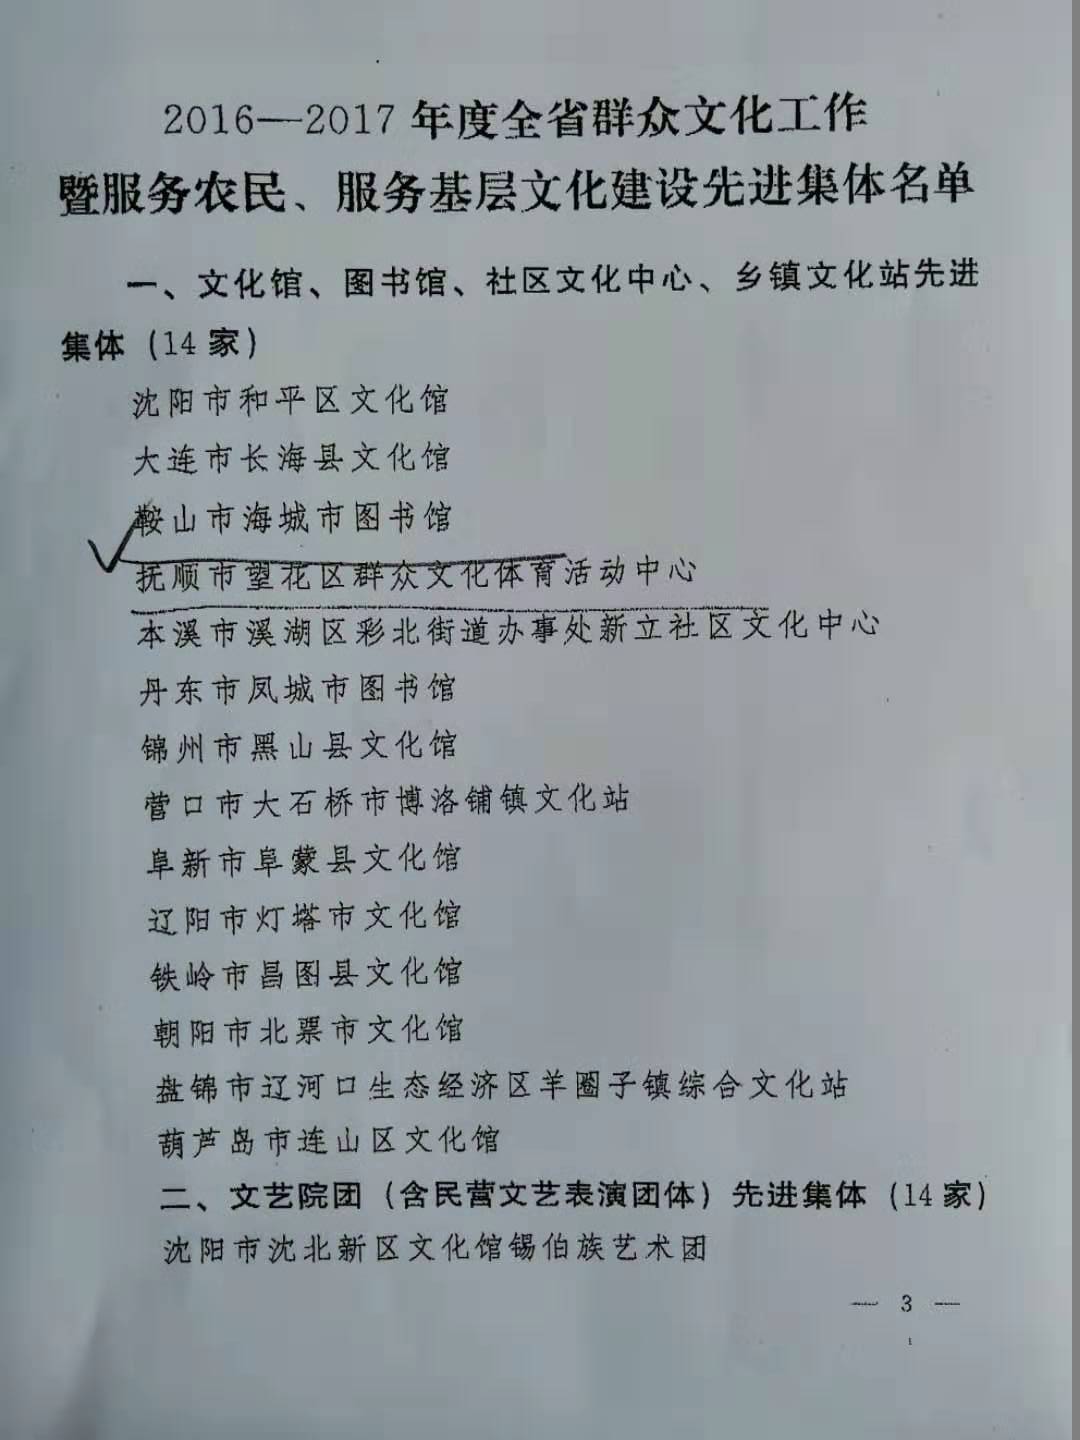 2016—2017年度全省群众文化工作
暨服务农民、服务基层文化建设先进集体名单
一、文化馆、图书馆、社区文化中心、乡镇文化站先进
集体（14家）
沈阳市和平区文化馆
大连市长海县文化馆
鞍山市海城市图书馆
抚顺市望花区群众文化体育活动中心
本溪市溪湖区彩北街道办事处新立社区文化中心
丹东市凤城市图书馆
锦州市黑山县文化馆
营口市大石桥市博洛铺镇文化站
阜新市阜蒙县文化馆
辽阳市灯塔市文化馆
铁岭市昌图县文化馆
朝阳市北票市文化馆
盘锦市辽河口生态经济区羊圈子镇综合文化站
葫芦岛市连山区文化馆
二、文艺院团（含民营文艺表演团体）先进集体（14家）
沈阳市沈北新区文化馆锡伯族艺术团
— 3 —